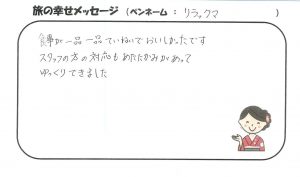 旅の幸せメッセージ （ペンネーム ： リラックマ ）
食事が一品一品ていねいでおいしかったです
スタッフの方の対応もあたたかみがあって
ゆっくりできました